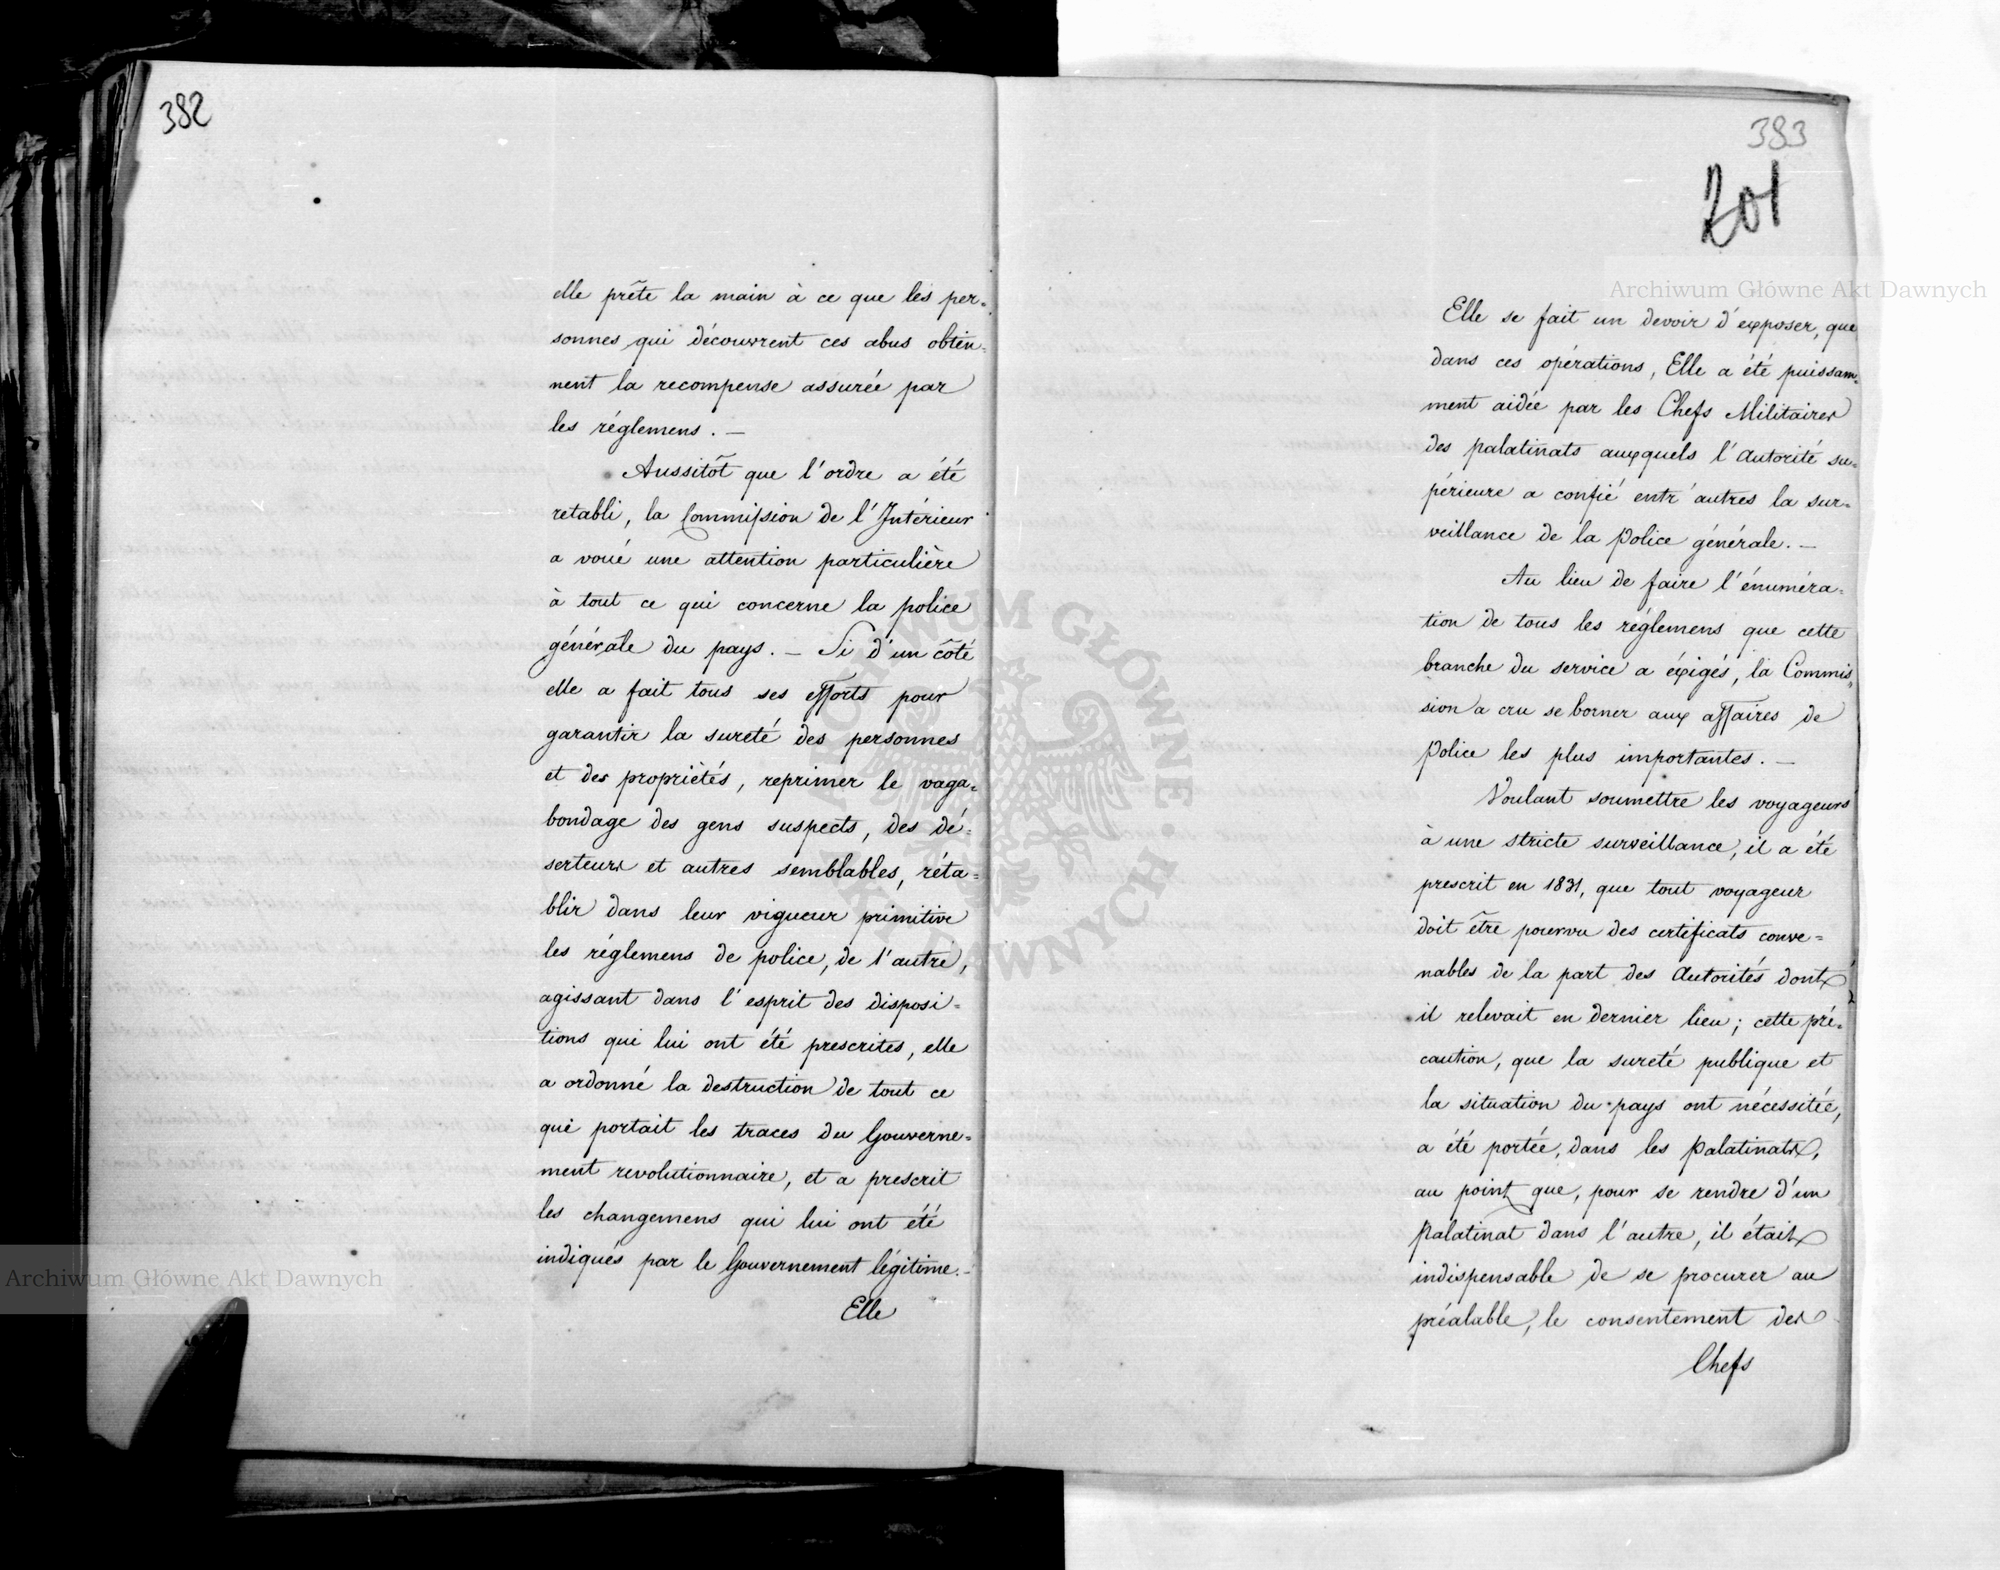 382
elle prête la main à ce que les per=
sonnes qui découvrent ces abus obtien=
nent la recompense assurée par
les réglemens. —
Aussitôt que l'ordre a été
retabli, la Commission de l'Intérieur
a voué une attention particulière
à tout ce qui concerne la police
générale du pays. — Si d'un côté
elle a fait tous ses efforts pour
garantir la sureté des personnes
et des propriétés, reprimer le vaga=
bondage des gens suspects, des dé=
serteurs et autres semblables, réta=
blir dans leur vigueur primitive
les réglemens de police, de l'autre,
agissant dans l'esprit des disposi=
tions qui lui ont été prescrites, elle
a ordonné la destruction de tout ce
qui portait les traces du Gouverne=
ment revolutionnaire, et a prescrit
les changemens qui lui ont été
indiqués par le Gouvernement légitime. -
Elle
383
201
Elle se fait un devoir d'exposer, que
dans ces opérations, Elle a été puissam=
ment aidée par les Chefs Militaires
des palatinats auxquels l'Autorité su=
périeure a confié entr'autres la sur=
veillance de la Police générale. —
Au lieu de faire l'énuméra=
tion de tous les réglemens que cette
branche du service a éxigés, la Commis=
sion a cru se borner aux affaires de
Police les plus importantes. —
Voulant soumettre les voyageurs
à une stricte surveillance, il a été
prescrit en 1831, que tout voyageur
doit être pourvu des certificats conve=
nables de la part des Autorités dont
il relevait en dernier lieu; cette pré=
caution, que la sureté publique et
la situation du pays ont nécessitée,
a été portée, dans les Palatinats,
au point que, pour se rendre d'un
Palatinat dans l'autre, il était
indispensable de se procurer au
préalable, le consentement des
Chefs
Archiwum Główne Akt Dawnych
Archiwum Główne Akt Dawnych
ARCHIWUM GŁÓWNE AKT DAWNYCH